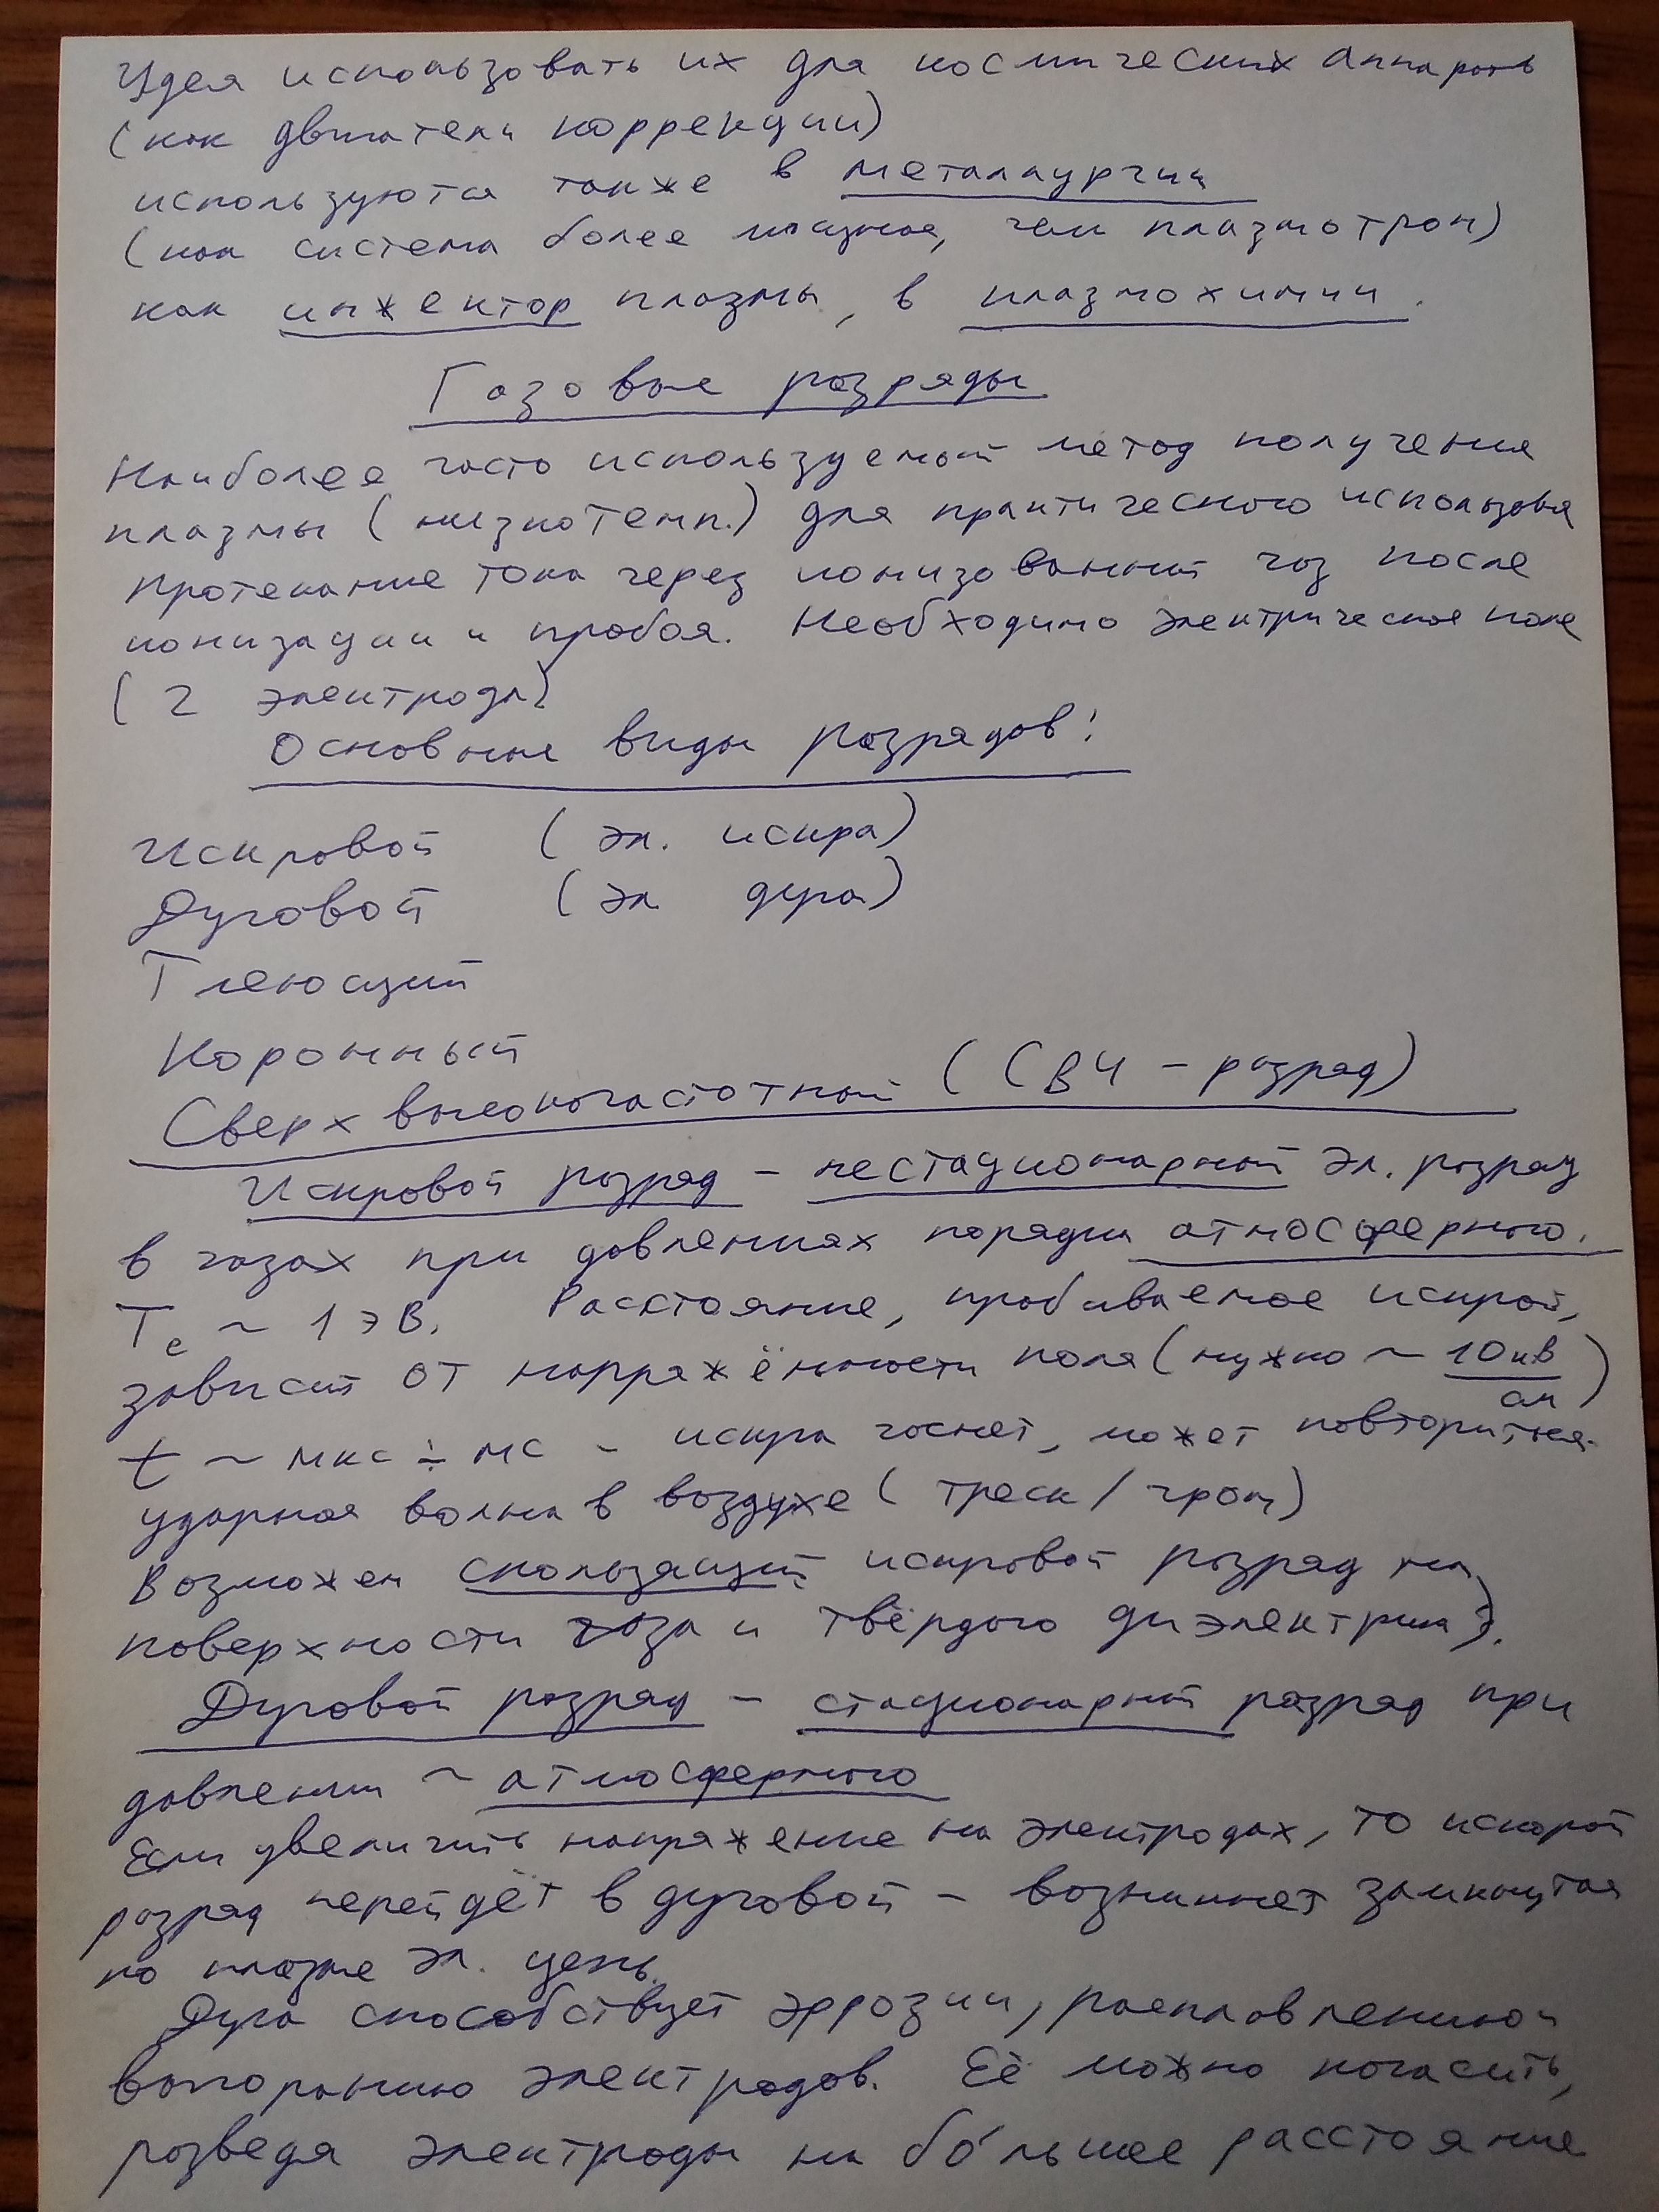 Идея использовать их для космических аппаратов
(как двигатели коррекции)
используются также в металлургии
(как система более мощная, чем плазмотрон)
как инжектор плазмы, в плазмохимии.
Газовые разряды
Наиболее часто используемый метод получения
плазмы (низкотемп.) для практического использован
протекание тока через ионизованный газ после
ионизации и пробоя. Необходимо электрическое поле
(2 электрода)
Основные виды разрядов:
Искровой (эл. искра)
Дуговой (эл дуга)
Тлеющий
Коронный
Сверхвысокочастотный (СВЧ - разряд)
Искровой разряд - нестационарный эл. разряд
в газах при давлениях порядка атмосферного.
Te ~ 1 эВ. Расстояние, пробиваемое искрой,
зависит от напряжённости поля (нужно ~ 10 кВ/см)
t ~ мкс ÷ мс - искра гаснет, может повториться.
ударная волна в воздухе (треск / гром)
Возможен скользящий искровой разряд на
поверхности газа и твёрдого диэлектрика).
Дуговой разряд - стационарный разряд при
давлении ~ атмосферного
Если увеличить напряжение на электродах, то искровой
разряд перейдёт в дуговой - возникнет замкнутая
по плазме эл. цепь.
Дуга способствует эррозии, расплавлению и
выгоранию электродов. Её можно погасить,
разведя электроды на бо́льшее расстояние